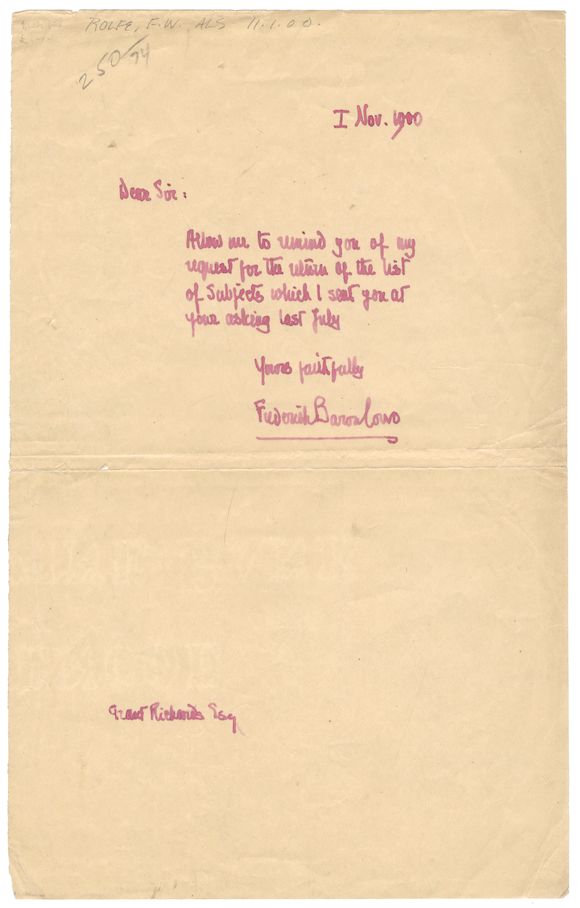 ROLFE, F.W. ALS 11.1.00.
250/94
I Nov. 1900
Dear Sir:
Allow me to remind you of my
request for the return of the list
of Subjects which I sent you at
your asking last July
Yours faithfully
Frederick Baron Corvo
Grant Richards Esq